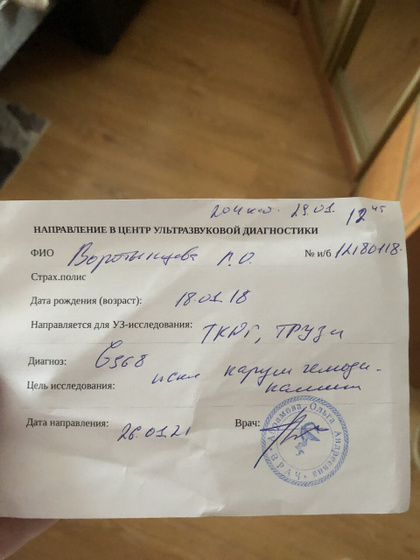 29.01. 12 45
НАПРАВЛЕНИЕ В ЦЕНТР УЛЬТРАЗВУКОВОЙ ДИАГНОСТИКИ
ФИО № и/б
Страх.полис
Дата рождения (возраст): 18.01.18
Направляется для УЗ-исследования: ТКДГ, ТРУЗИ
Диагноз: G968
Цель исследования: искл наруш гемоди-
намики
Дата направления: 26.01.21 Врач:
Ольга Андреевна
ВРАЧ